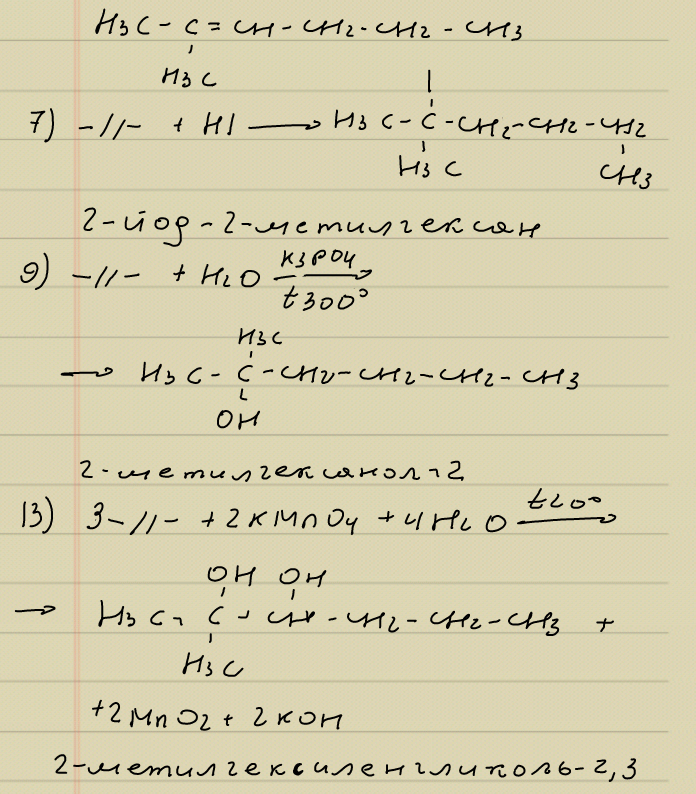 H3C - C = CH - CH2 - CH2 - CH3
H3C
I
7) -//- + HI ⟶ H3C - C - CH2 - CH2 - CH2
H3C CH3
2-йод-2-метилгексан
9) -//- + H2O K3PO4 ⟶
t300°
H3C
⟶ H3C - C - CH2 - CH2 - CH2 - CH3
OH
2-метилгексанол-2
13) 3-//- + 2KMnO4 + 4H2O t20° ⟶
OH OH
⟶ H3C - C - CH - CH2 - CH2 - CH3 +
H3C
+2MnO2 + 2KOH
2-метилгексиленгликоль-2,3